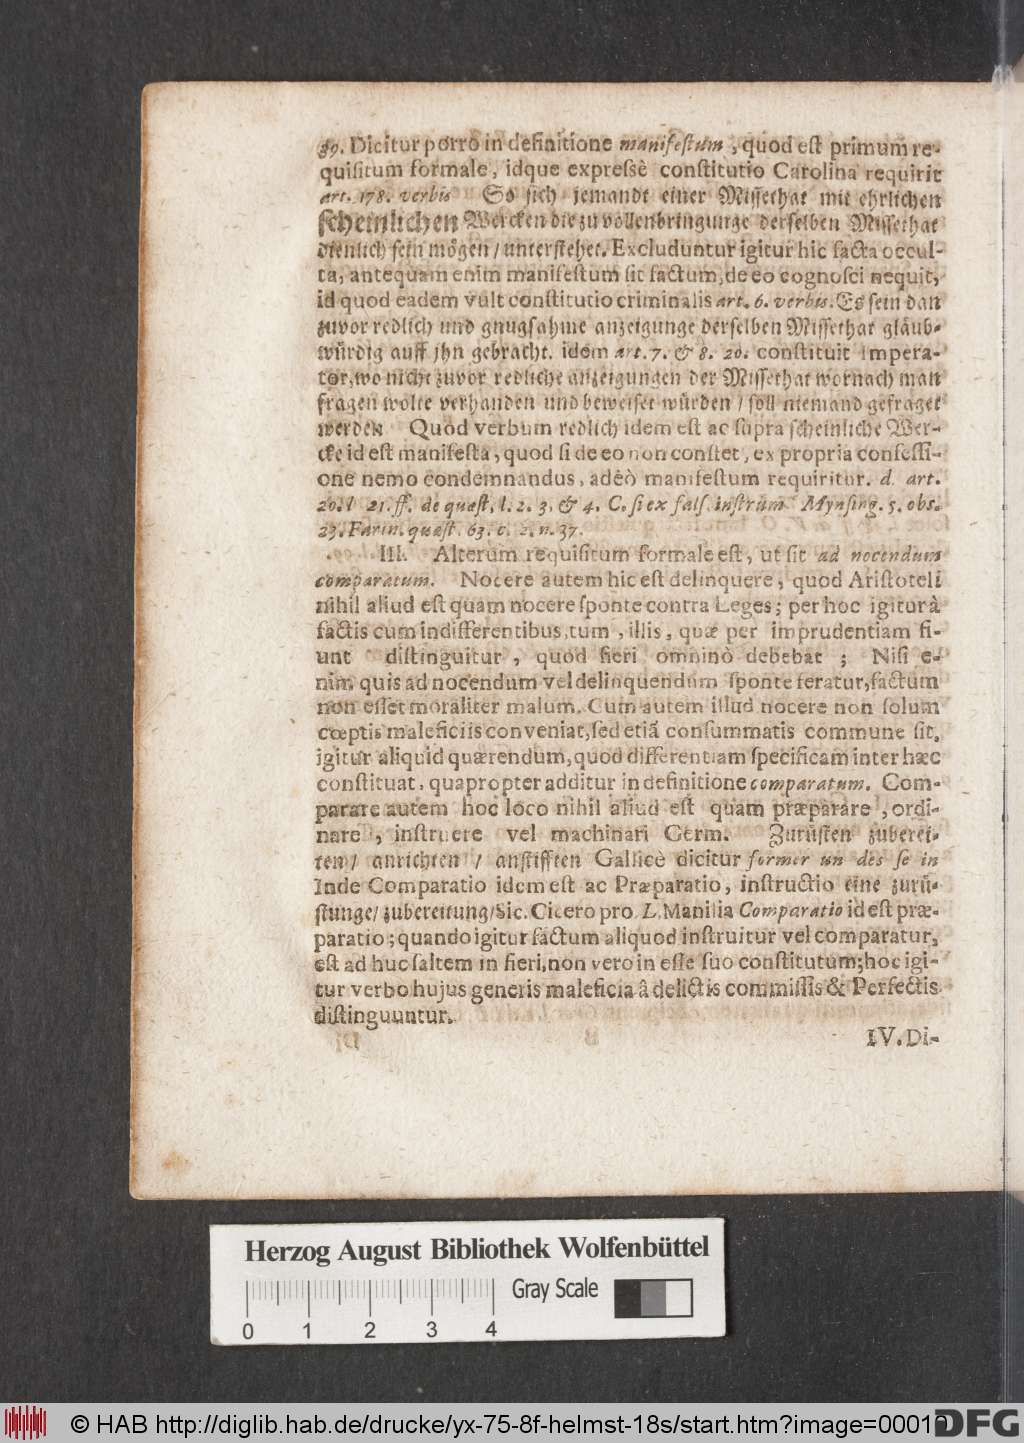 89. Dicitur porrò in definitione manifestum, quod est primum re-
quisitum formale, idque expressè constitutio Carolina requirit
art. 178. verbis So sich jemandt einer Missethat mit ehrlichen
scheinlichen Wercken die zu vollenbringunge derselben Missethat
dienlich sein mögen / unterstehet. Excluduntur igitur hic facta occul-
ta, antequam enim manifestum sit factum, de eo cognosci nequit,
id quod eadem vult constitutio criminalis art. 6. verbis. Es sein dan
zuvor redlich und gnugsahme anzeigunge derselben Missethat gläub-
würdig auff jhn gebracht. idem art. 7. & 8. 20. constituit Impera-
tor, wo nicht zuvor redliche anzeigungen der Missethat wornach man
fragen wolte verhanden und beweiset würden / soll niemand gefraget
werden Quod verbum redlich idem est ac supra scheinliche Wer-
cke id est manifesta, quod si de eo non constet, ex propria confessi-
one nemo condemnandus, adeò manifestum requiritur. d. art.
20. l 21. ff. de quæst. l. 2. 3. & 4. C. si ex fals. instrum Mynsing. 5. obs.
23. Farin. quæst. 63. c. 2. n. 37.
III. Alterum requisitum formale est, ut sit ad nocendum
comparatum. Nocere autem hic est delinquere, quod Aristoteli
nihil aliud est quam nocere sponte contra Leges; per hoc igitur à
factis cum indifferentibus, tum, illis, quæ per imprudentiam fi-
unt distinguitur, quod fieri omninò debebat ; Nisi e-
nim quis ad nocendum vel delinquendum sponte feratur, factum
non esset moraliter malum. Cum autem illud nocere non solum
cœptis maleficiis conveniat, sed etiã consummatis commune sit,
igitur aliquid quærendum, quod differentiam specificam inter hæc
constituat, quapropter additur in definitione comparatum. Com-
parare autem hoc loco nihil aliud est quam præparare, ordi-
nare, instruere vel machinari Germ. Zurüsten zuberei-
ten / anrichten / anstifften Gallicè dicitur former un des se in
Inde Comparatio idem est ac Præparatio, instructio eine zurü-
stunge / zubereitung / Sic. Cicero pro L. Manilia Comparatio id est præ-
paratio; quando igitur factum aliquod instruitur vel comparatur,
est ad huc saltem in fieri, non vero in esse suo constitutum; hoc igi-
tur verbo hujus generis maleficia â delictis commissis & Perfectis
distinguuntur.
IV. Di-
Herzog August Bibliothek Wolfenbüttel
Gray Scale
0 1 2 3 4
© HAB http://diglib.hab.de/drucke/yx-75-8f-helmst-18s/start.htm?image=00010
DFG